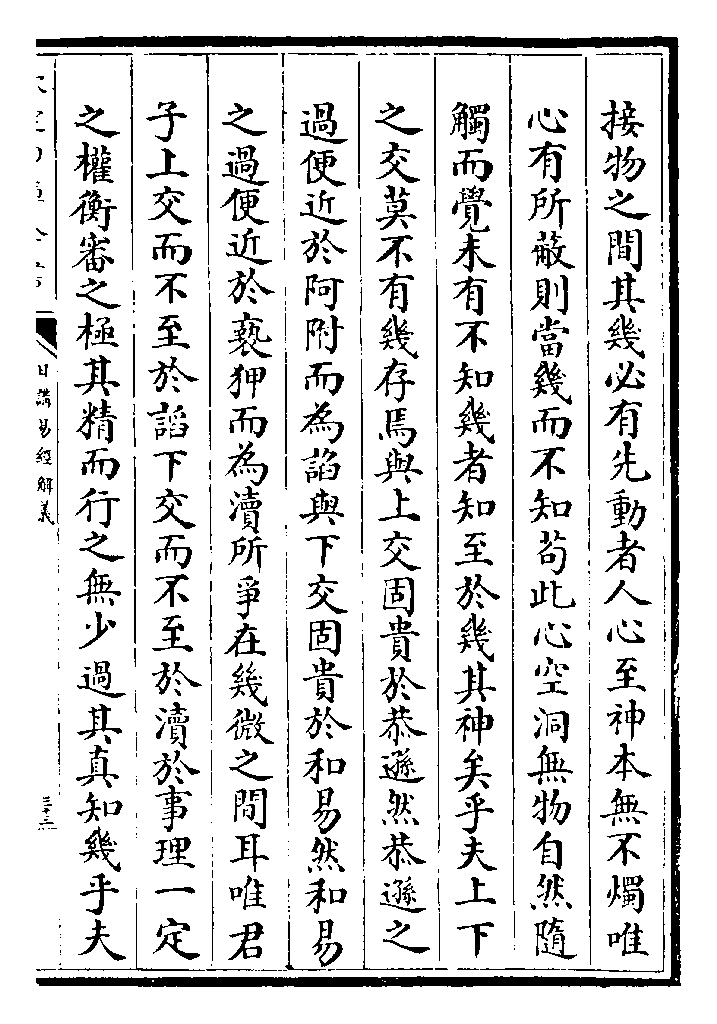 接物之間其幾必有先動者人心至神本無不燭唯
心有所蔽則當幾而不知苟此心空洞無物自然隨
觸而覺未有不知幾者知至於幾其神矣乎夫上下
之交莫不有幾存焉與上交固貴於恭遜然恭遜之
過便近於阿附而為謟與下交固貴於和易然和易
之過便近於褻狎而為瀆所爭在幾微之間耳唯君
子上交而不至於謟下交而不至於瀆於事理一定
之權衡審之極其精而行之無少過其真知幾乎夫
日講易經解義